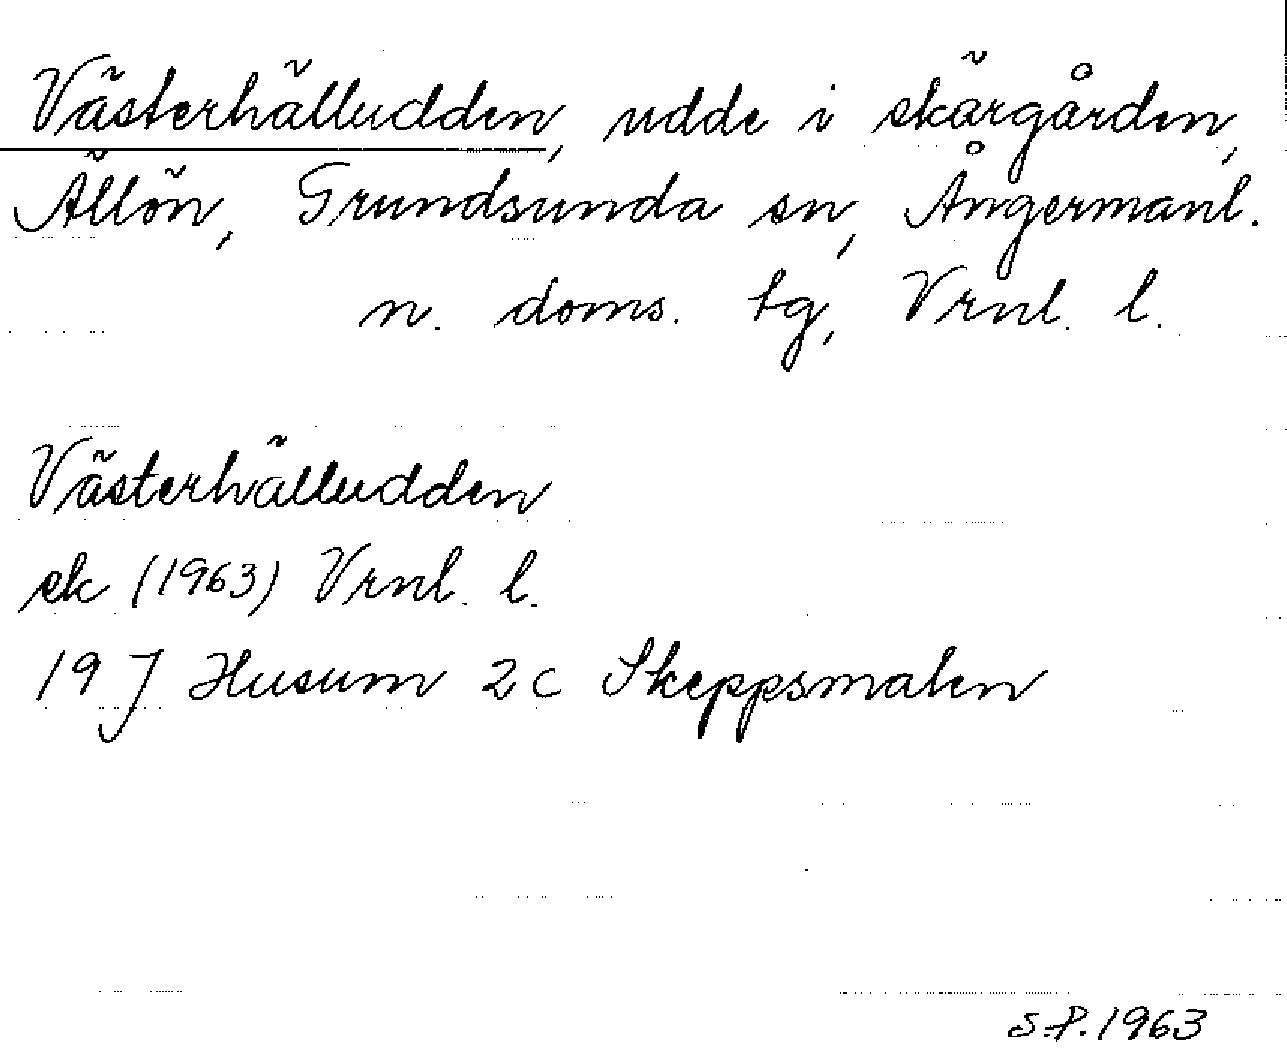 Västerhälludden, udde i skärgården,
Ällön, Grundsunda sn, Ångermanl.
n. doms. tg, Vrnl. l.
Västerhälludden
ek (1963) Vrnl. l.
19 J Husum 2c Skeppsmalen
S.P. 1963